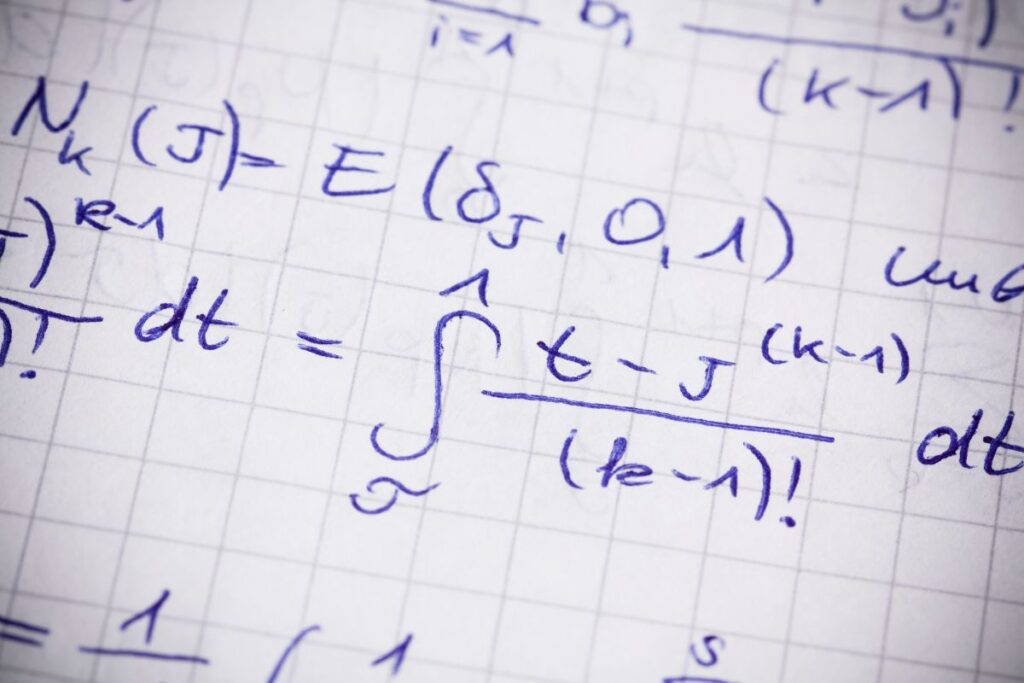 i=1 b, (k-1)!
N_k (J) = E (δ_J, 0, 1) und
)^{k-1} / )! dt = ∫_σ^1 t - J^{(k-1)} / (k-1)! dt
= 1 ( 1 s